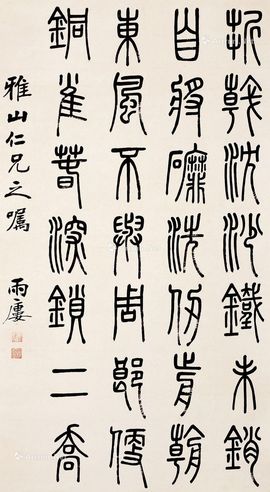 折戟沈沙鐵未銷
自將磨洗仞前朝
東風不與周郎便
銅雀春深鎖二喬
雅山仁兄之囑
雨廔